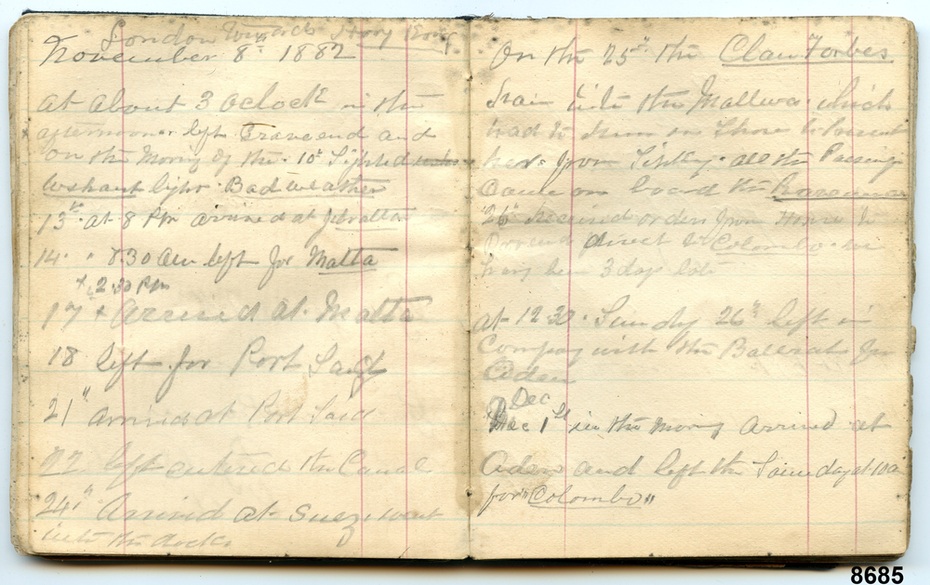 London towards Hong Kong
November 8th 1882
at about 3 oclock in the
afternoon left Gravesend and
on the Morng of the 10th Sighted
Ushant light. Bad weather
13th at 8 Pm arrived at Gibraltar
14. " 8.30 am left for Malta
at 2.30 Pm
17th Arrived at Malta
18 left for Port Said
21st arrived at Port Said
22 left entered the Canal
24th Arrived at Suez went
into the docks
On the 25th the Clan Forbes
ran into the which
had to run on Shore to prevent
her from Sinking. all the Passeng
came on board the
26th received orders from Home to
proceed direct to Colombo. in
being 3 days late
at 12.30. Sunday 26th left in
Company with the Ballarat for
Aden
Dec
Dec 1st in the Morng arrived at
Aden and left the Same day at 10 a
for "Colombo"
8685